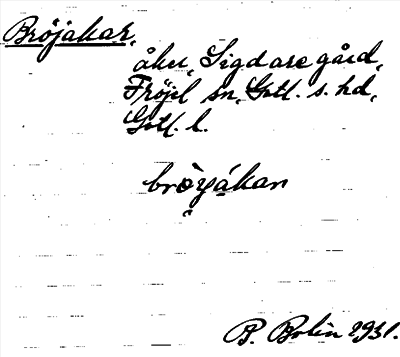 Bröjåkar,
åker, Sigdare gård,
Fröjel sn, Gotl. s. hd,
Gotl. l.
bròyákan
B. Bolin 1931.